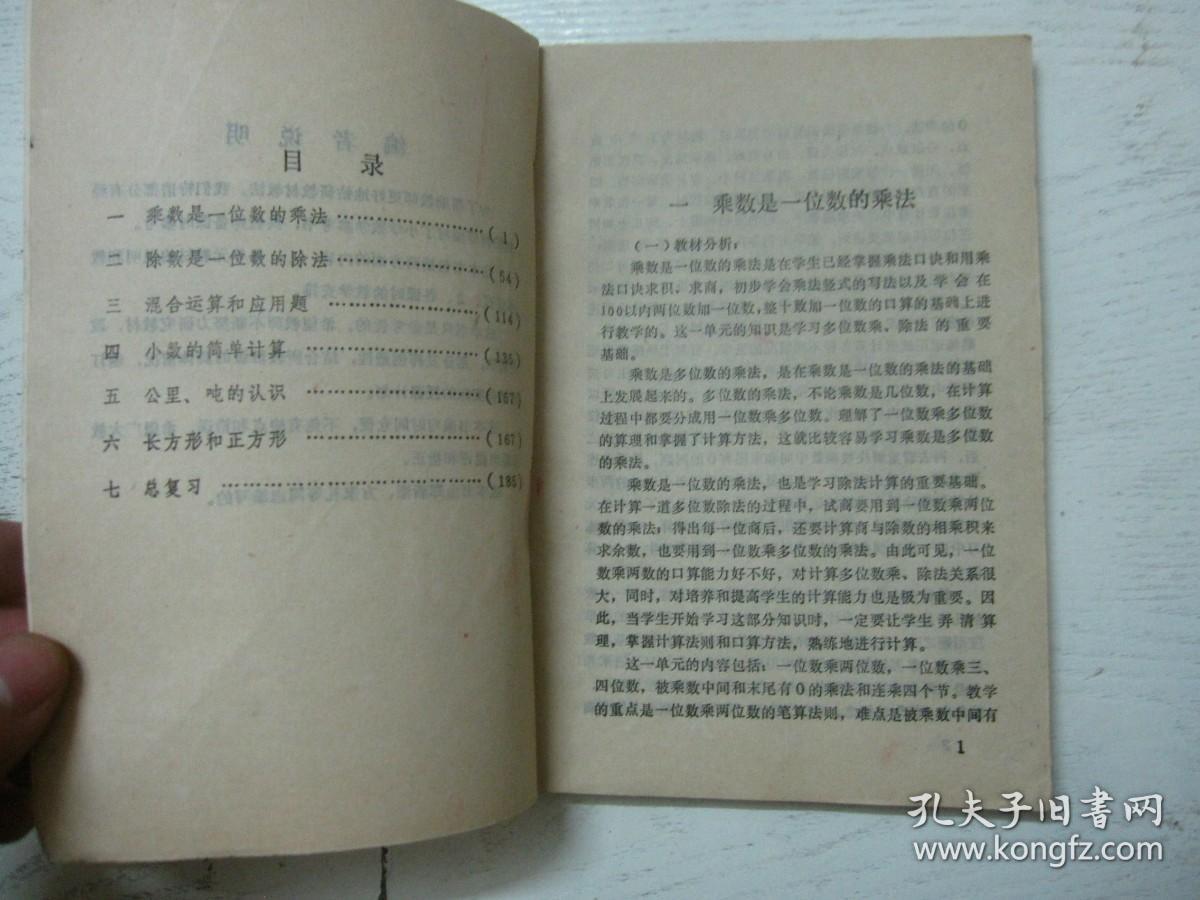 目 录
一 乘数是一位数的乘法……………………(1)
二 除数是一位数的除法……………………(54)
三 混合运算和应用题……………………(114)
四 小数的简单计算……………………(135)
五 公里、吨的认识……………………(157)
六 长方形和正方形……………………(167)
七 总复习……………………(185)
一 乘数是一位数的乘法
（一）教材分析：
乘数是一位数的乘法是在学生已经掌握乘法口诀和用乘
法口诀求积、求商，初步学会乘法竖式的写法以及学会在
100以内两位数加一位数，整十数加一位数的口算的基础上进
行教学的。这一单元的知识是学习多位数乘、除法的重要
基础。
乘数是多位数的乘法，是在乘数是一位数的乘法的基础
上发展起来的。多位数的乘法，不论乘数是几位数，在计算
过程中都要分成用一位数乘多位数。理解了一位数乘多位数
的算理和掌握了计算方法，这就比较容易学习乘数是多位数
的乘法。
乘数是一位数的乘法，也是学习除法计算的重要基础。
在计算一道多位数除法的过程中，试商要用到一位数乘两位
数的乘法；得出每一位商后，还要计算商与除数的相乘积来
求余数，也要用到一位数乘多位数的乘法。由此可见，一位
数乘两数的口算能力好不好，对计算多位数乘、除法关系很
大，同时，对培养和提高学生的计算能力也是极为重要。因
此，当学生开始学习这部分知识时，一定要让学生弄清算
理，掌握计算法则和口算方法，熟练地进行计算。
这一单元的内容包括：一位数乘两位数，一位数乘三、
四位数，被乘数中间和末尾有0的乘法和连乘四个节。教学
的重点是一位数乘两位数的笔算法则，难点是被乘数中间有
1
孔夫子旧书网
www.kongfz.com